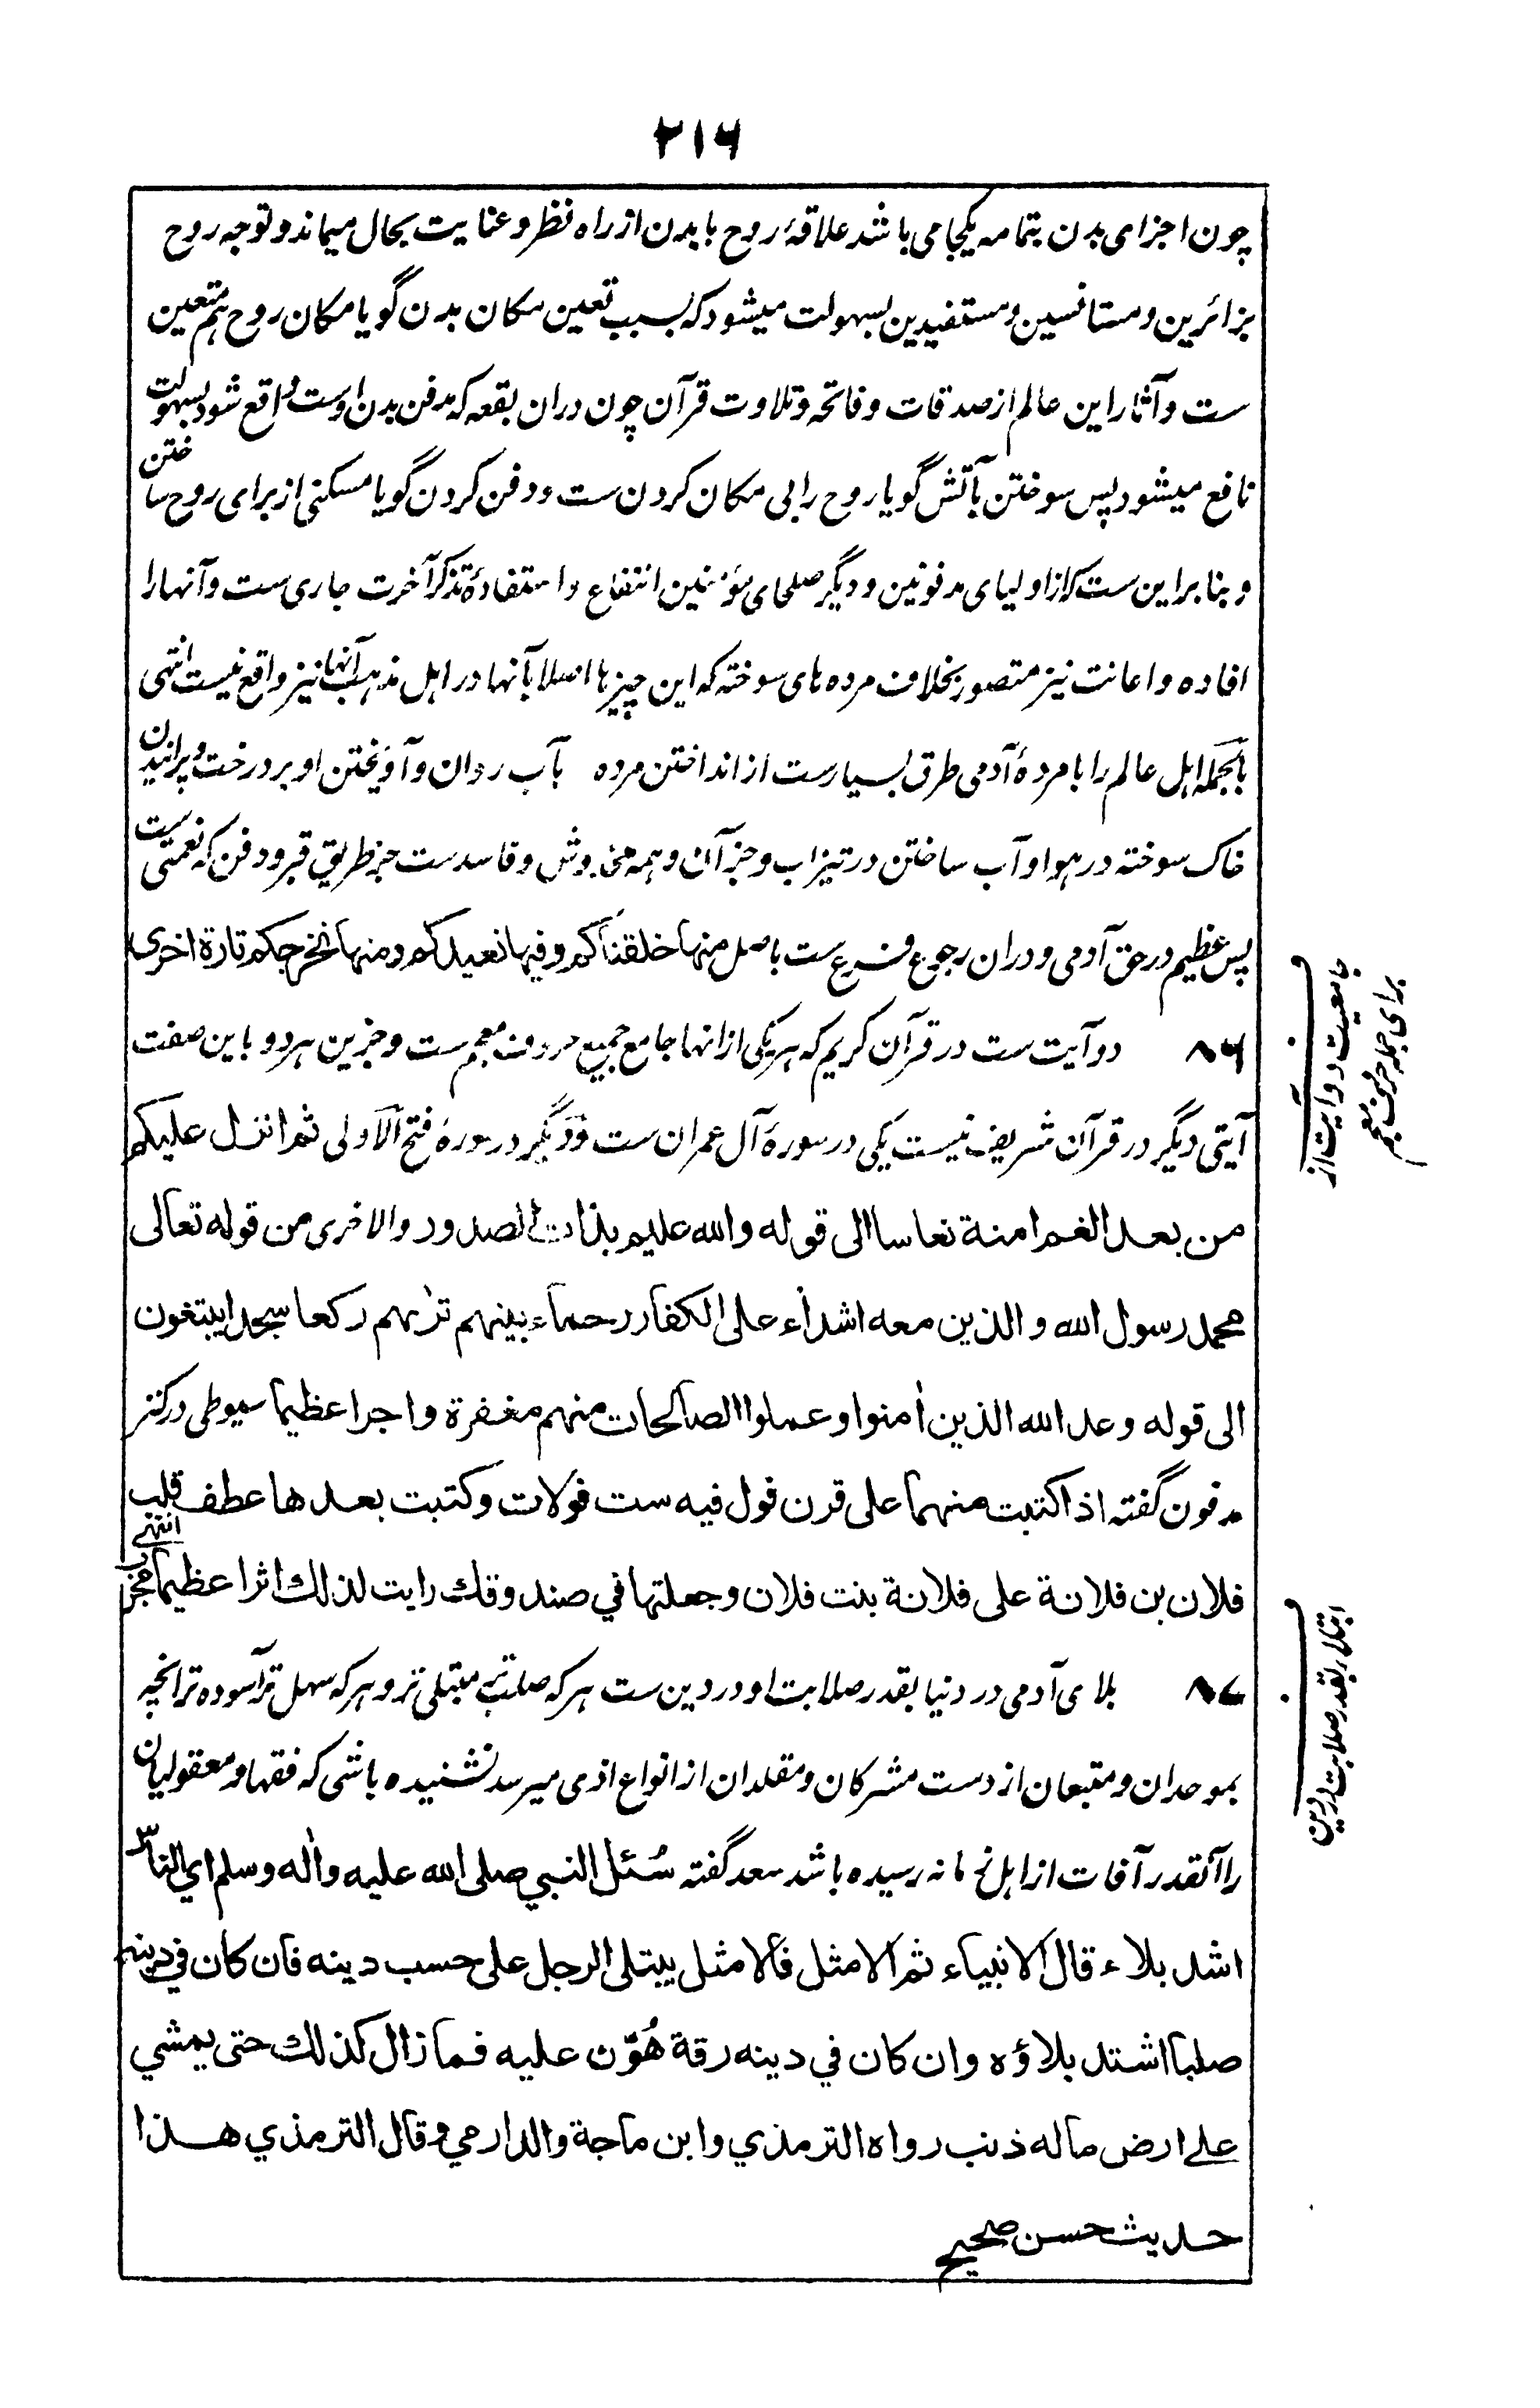 ۲۱۶
چون اجزای بدن بتمامه یکجا می باشد علاقهٔ روح با بدن از راه نظر و عنایت بحال میماند و توجه روح
بزائرین و مستانسین و مستفیدین بسهولت میشود که بسبب تعین مکان بدن گویا مکان روح هم متعین
ست و آثار این عالم از صدقات و فاتحه و تلاوت قرآن چون دران بقعه که مدفن بدن اوست واقع شود بسهولت
نافع میشود پس سوختن بآتش گویا روح را بی مکان کردن ست و دفن کردن گویا مسکنی از برای روح ساختن
و بنا بر این ست که از اولیای مدفونین و دیگر صلحای مؤمنین انتفاع و استفادهٔ تذکر آخرت جاری ست و آنها را
افاده و اعانت نیز متصور بخلاف مرده های سوخته که این چیزها اصلا بآنها در اهل مذهب آنها نیز واقع نیست انتهی
بالجمله اهل عالم را با مردهٔ آدمی طرق بسیارست از انداختن مرده بآب روان و آویختن او بر درخت و پرانیدن
خاک سوخته در هوا و آب ساختن در تیزاب و جز آن و همه مخدوش و فاسدست جز طریق قبر و دفن که نعمتی ست
پس عظیم در حق آدمی و دران رجوع فرع ست باصل منها خلقناکم و فیها نعیدکم ومنها نخرجکم تارة اخری
۸۶ دو آیت ست در قرآن کریم که هر یکی از انها جامع جمیع حروف معجم ست و جز این هر دو باین صفت
آیتی دیگر در قرآن شریف نیست یکی در سورهٔ آل عمران ست و دیگر در سورهٔ فتح الاولی ثم انزل علیکم
من بعد الغم امنة نعاسا الی قوله والله علیم بذات الصدور والاخری من قوله تعالی
محمد رسول الله والذین معه اشدآء علی الکفار رحمآء بینهم ترٰیهم رکعا سجدا یبتغون
الی قوله وعد الله الذین اٰمنوا وعملوا الصالحات منهم مغفرة واجرا عظیما سیوطی در کنز
مدفون گفته اذا کتبت منهما علی قرن فول فیه ست فولات وکتبت بعدها عطف قلب
فلان بن فلانة علی فلانة بنت فلان وجعلتها في صندوقك رایت لذلك اثرا عظیما مجرّ انتهی
۸۷ بلای آدمی در دنیا بقدر صلابت او در دین ست هر که صلب تر مبتلی تر و هر که سهل تر آسوده تر انچه
بموحدان و متبعان از دست مشرکان و مقلدان از انواع اذی میرسد نشنیده باشی که فقها و معقولیان
را آنقدر آفات از اهل زمانه رسیده باشد سعد گفته سُئل النبي صلی الله علیه واٰله وسلم اي الناس
اشد بلاء قال الانبیاء ثم الامثل فالامثل یبتلی الرجل علی حسب دینه فان کان في دینه
صلبا اشتد بلاؤه وان کان في دینه رقة هُوّن علیه فما زال کذلك حتی یمشي
علے ارض ماله ذنب رواه الترمذي وابن ماجة والدارمي وقال الترمذي هذا
حدیث حسن صحیح
ف
جامعیت دو آیت از
برای جمله حروف معجم
ف
ابتلا بقدر صلابت در دین